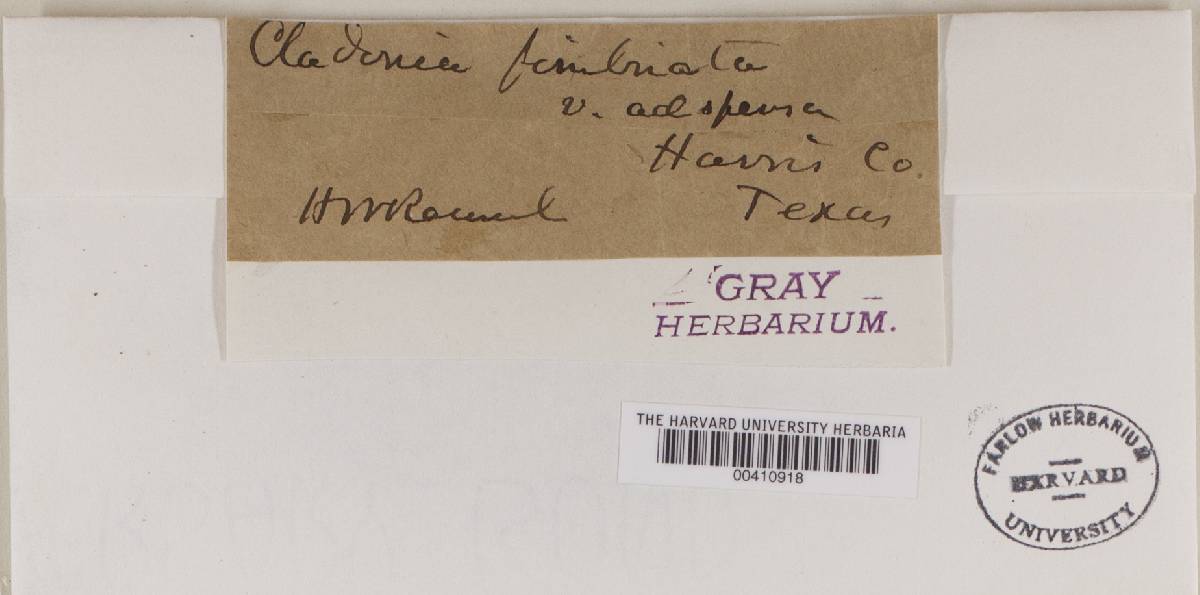 Cladonia fimbriata
v. adspersa
Harris Co.
Texas
HWRavenel
GRAY
HERBARIUM.
THE HARVARD UNIVERSITY HERBARIA
00410918
FARLOW HERBARIUM
HARVARD
UNIVERSITY